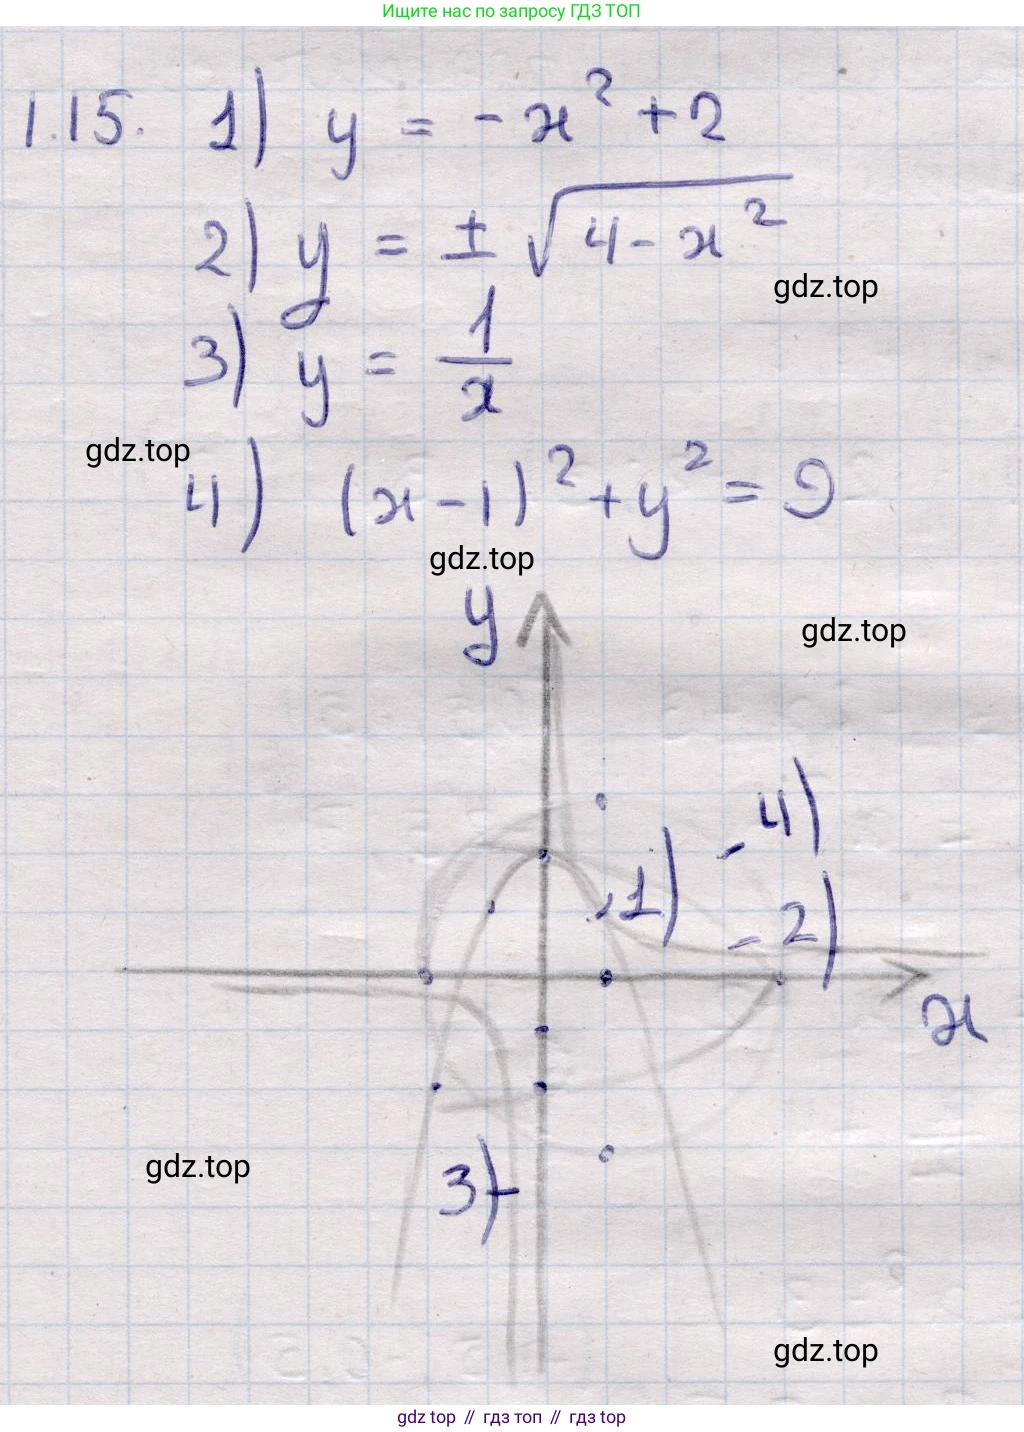 Ищите нас по запросу ГДЗ ТОП
1.15. 1) y = -x² + 2
2) y = ± √(4 - x²)
gdz.top
3) y = 1/x
gdz.top
4) (x - 1)² + y² = 9
gdz.top
y
gdz.top
4)
1)
2)
x
gdz.top
3)
gdz.top
gdz top // гдз топ // гдз top